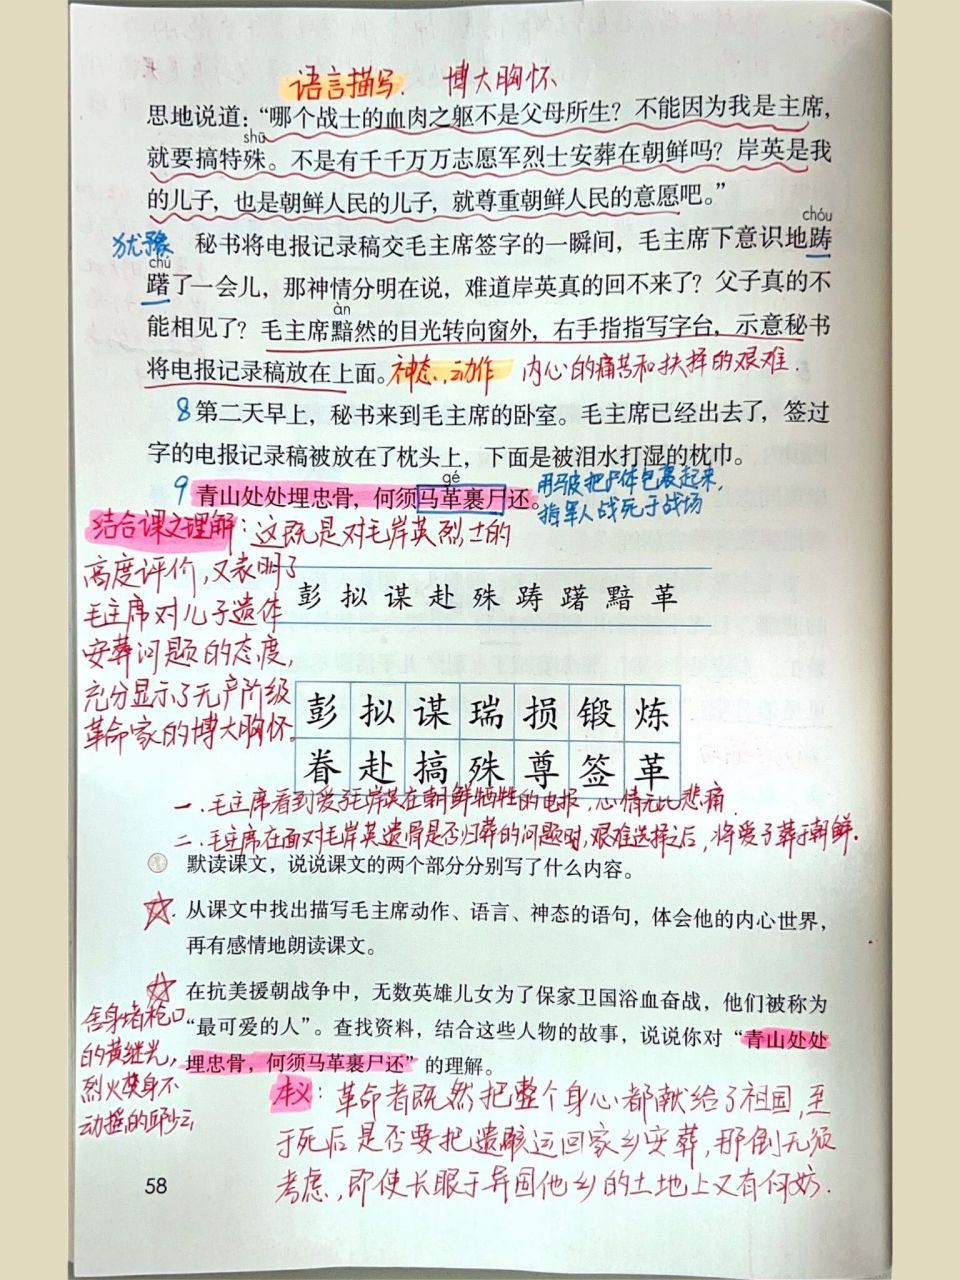 语言描写. 博大胸怀
思地说道：“哪个战士的血肉之躯不是父母所生？不能因为我是主席，
shū
就要搞特殊。不是有千千万万志愿军烈士安葬在朝鲜吗？岸英是我
的儿子，也是朝鲜人民的儿子，就尊重朝鲜人民的意愿吧。”
chóu
犹豫
秘书将电报记录稿交毛主席签字的一瞬间，毛主席下意识地踌
chú
躇了一会儿，那神情分明在说，难道岸英真的回不来了？父子真的不
àn
能相见了？毛主席黯然的目光转向窗外，右手指指写字台，示意秘书
将电报记录稿放在上面。神态，动作 内心的痛苦和抉择的艰难.
8第二天早上，秘书来到毛主席的卧室。毛主席已经出去了，签过
字的电报记录稿被放在了枕头上，下面是被泪水打湿的枕巾。
gé
9 青山处处埋忠骨，何须马革裹尸还。
用马皮把尸体包裹起来，
指军人战死于战场
结合课文理解：这既是对毛岸英烈士的
高度评价，又表明了
毛主席对儿子遗体
安葬问题的态度，
充分显示了无产阶级
革命家的博大胸怀。
彭 拟 谋 赴 殊 踌 躇 黯 革
彭 拟 谋 瑞 损 锻 炼
眷 赴 搞 殊 尊 签 革
一.毛主席看到爱子毛岸英在朝鲜牺牲的电报，心情无比悲痛.
二.毛主席在面对毛岸英遗骨是否归葬的问题时，艰难选择之后，将爱子葬于朝鲜.
默读课文，说说课文的两个部分分别写了什么内容。
从课文中找出描写毛主席动作、语言、神态的语句，体会他的内心世界，
再有感情地朗读课文。
在抗美援朝战争中，无数英雄儿女为了保家卫国浴血奋战，他们被称为
“最可爱的人”。查找资料，结合这些人物的故事，说说你对“青山处处
埋忠骨，何须马革裹尸还”的理解。
舍身堵枪口
的黄继光，
烈火焚身不
动摇的邱少云
本义：革命者既然把整个身心都献给了祖国，至
于死后是否要把遗骸运回家乡安葬，那倒无须
考虑，即使长眠于异国他乡的土地上又有何妨.
58